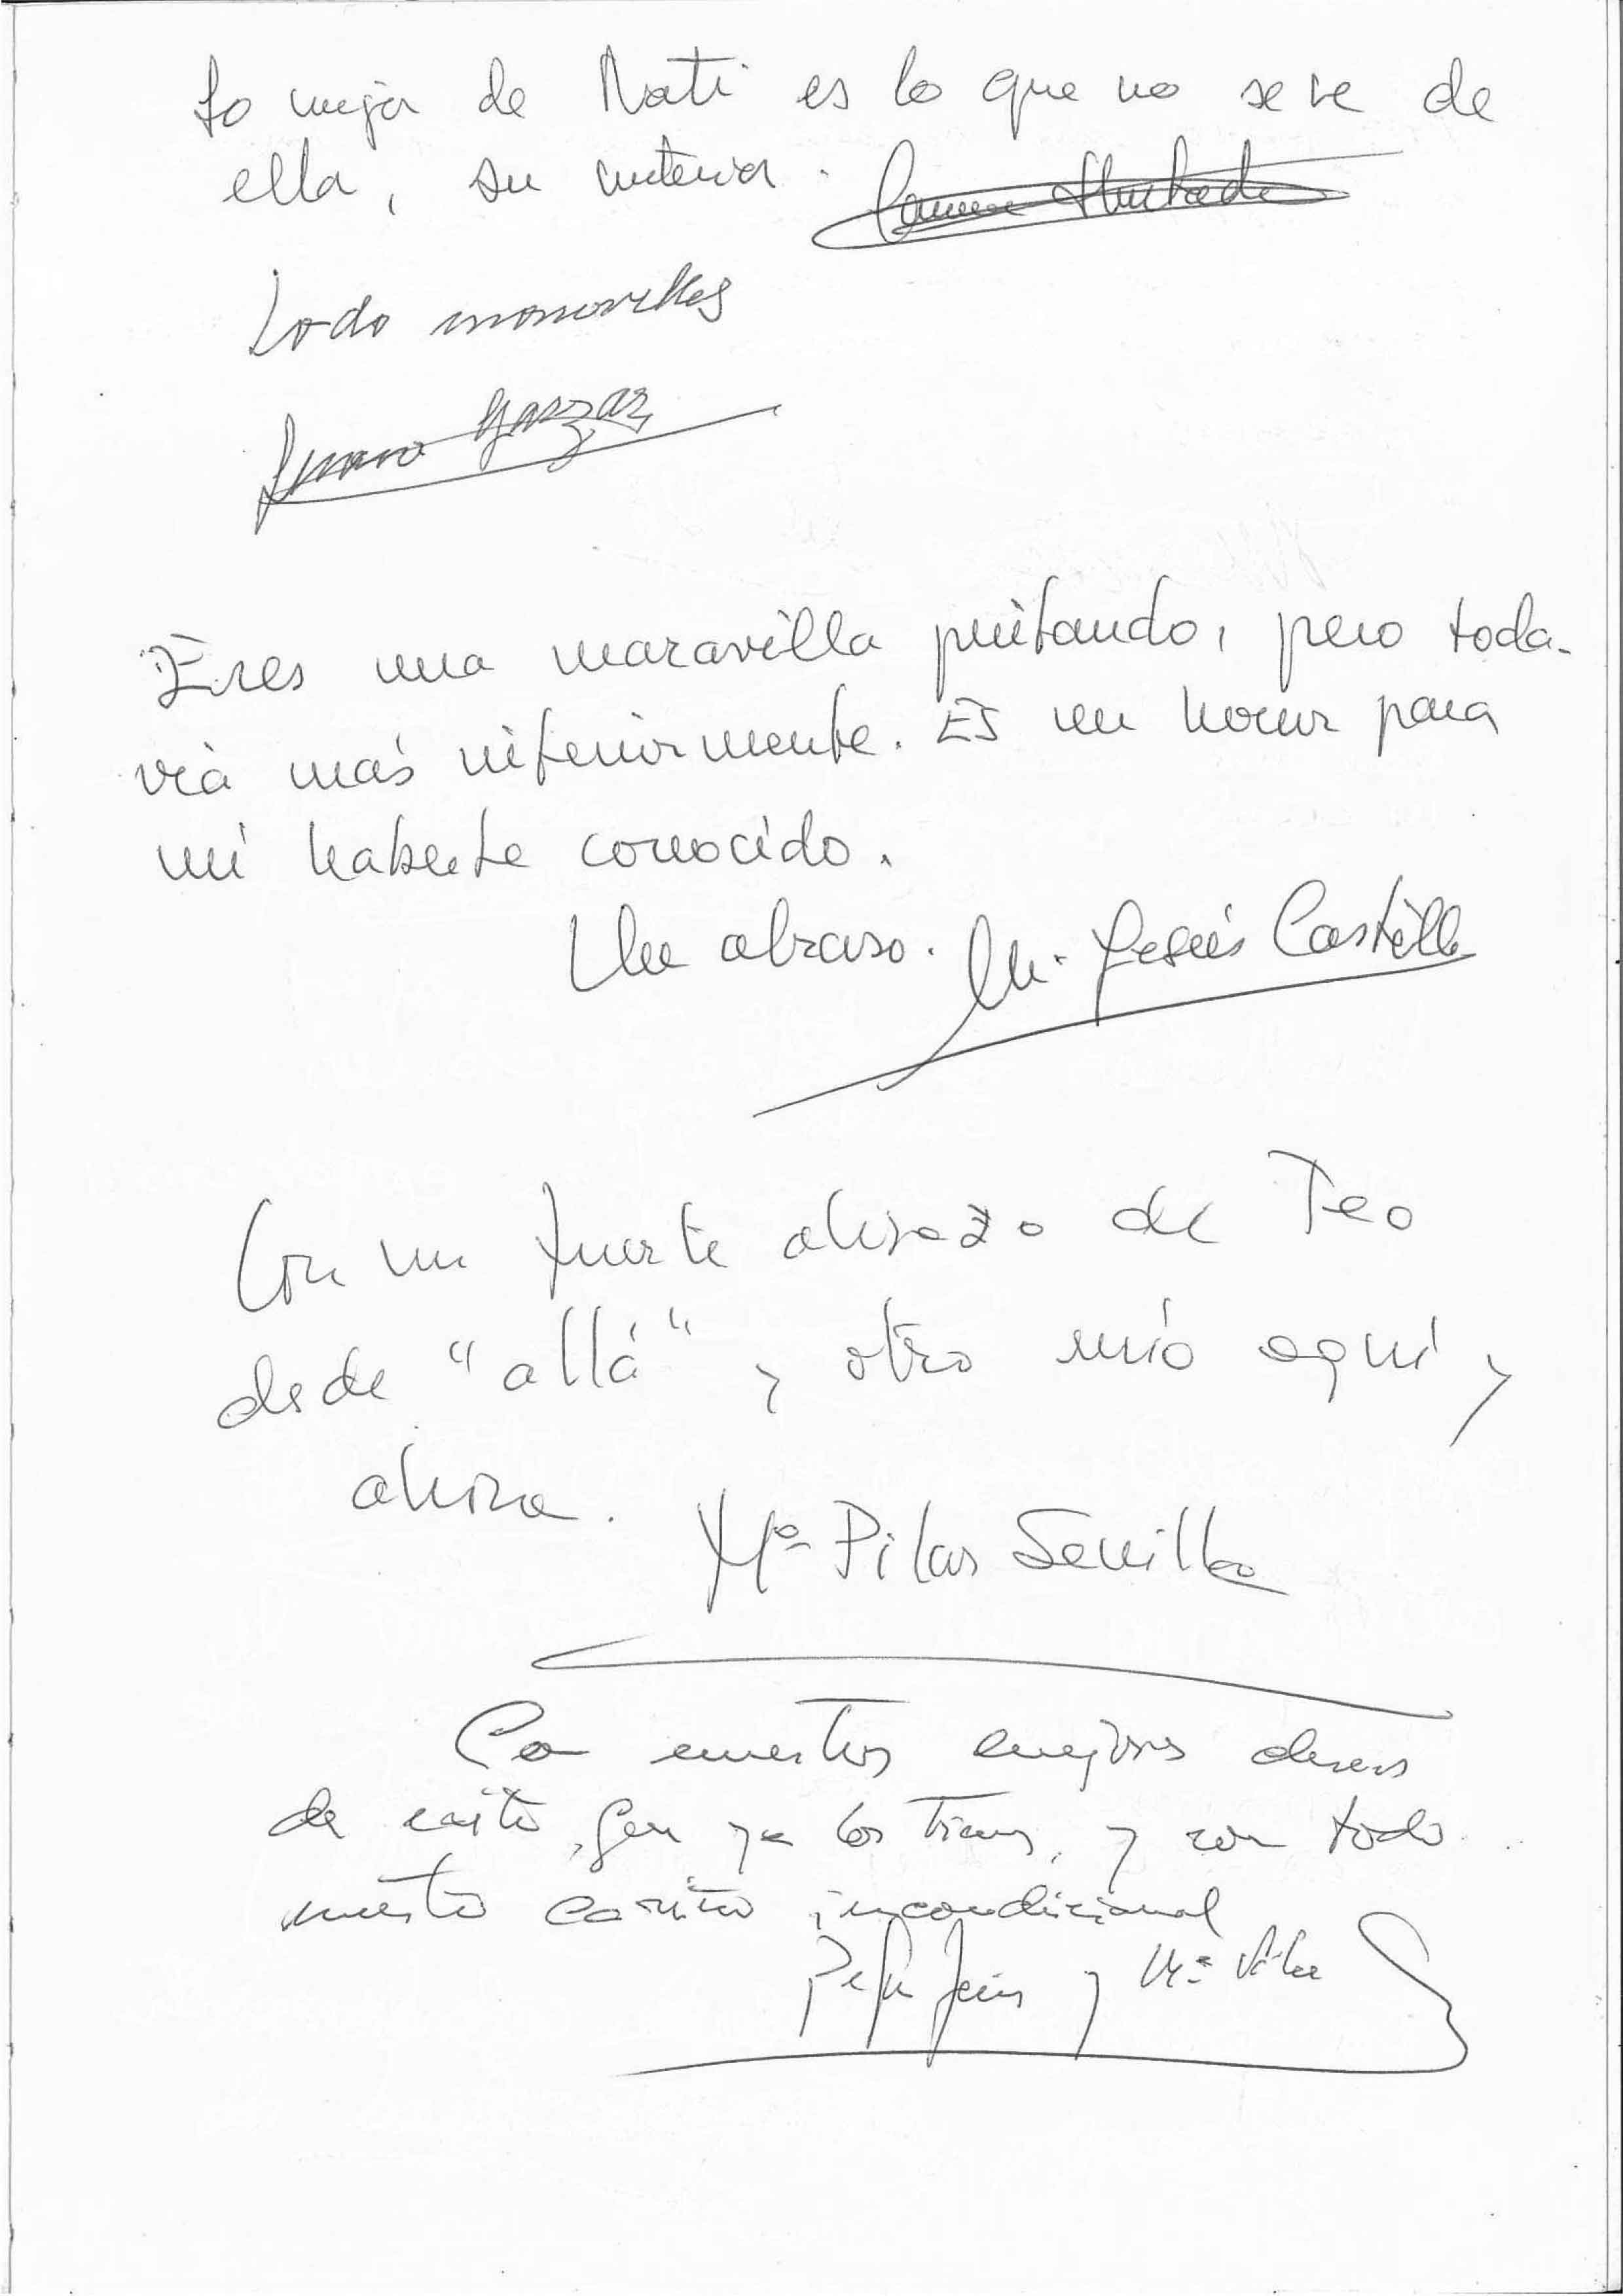 Lo mejor de Nati es lo que no se ve de
ella, su interior. Carmen Hurtado
Todo
Eres una maravilla pintando, pero toda-
vía más interiormente. Es un honor para
mí haberte conocido.
Un abrazo. M. Jesús Castillo
Con un fuerte abrazo de Teo
desde "allá" y otro mío aquí y
ahora. Mª Pilar Sevilla
Con nuestros mejores deseos
de éxito, que ya los tienes, y con todo
nuestro cariño incondicional
y Mª